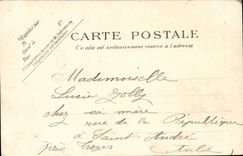 Expédié par
M
Rue
CARTE POSTALE
Ce côté est exclusivement réservé à l'adresse
Mademoiselle
Lucie Jolly
chez sa mère
rue de la République
à Saint André
près Troyes Aube